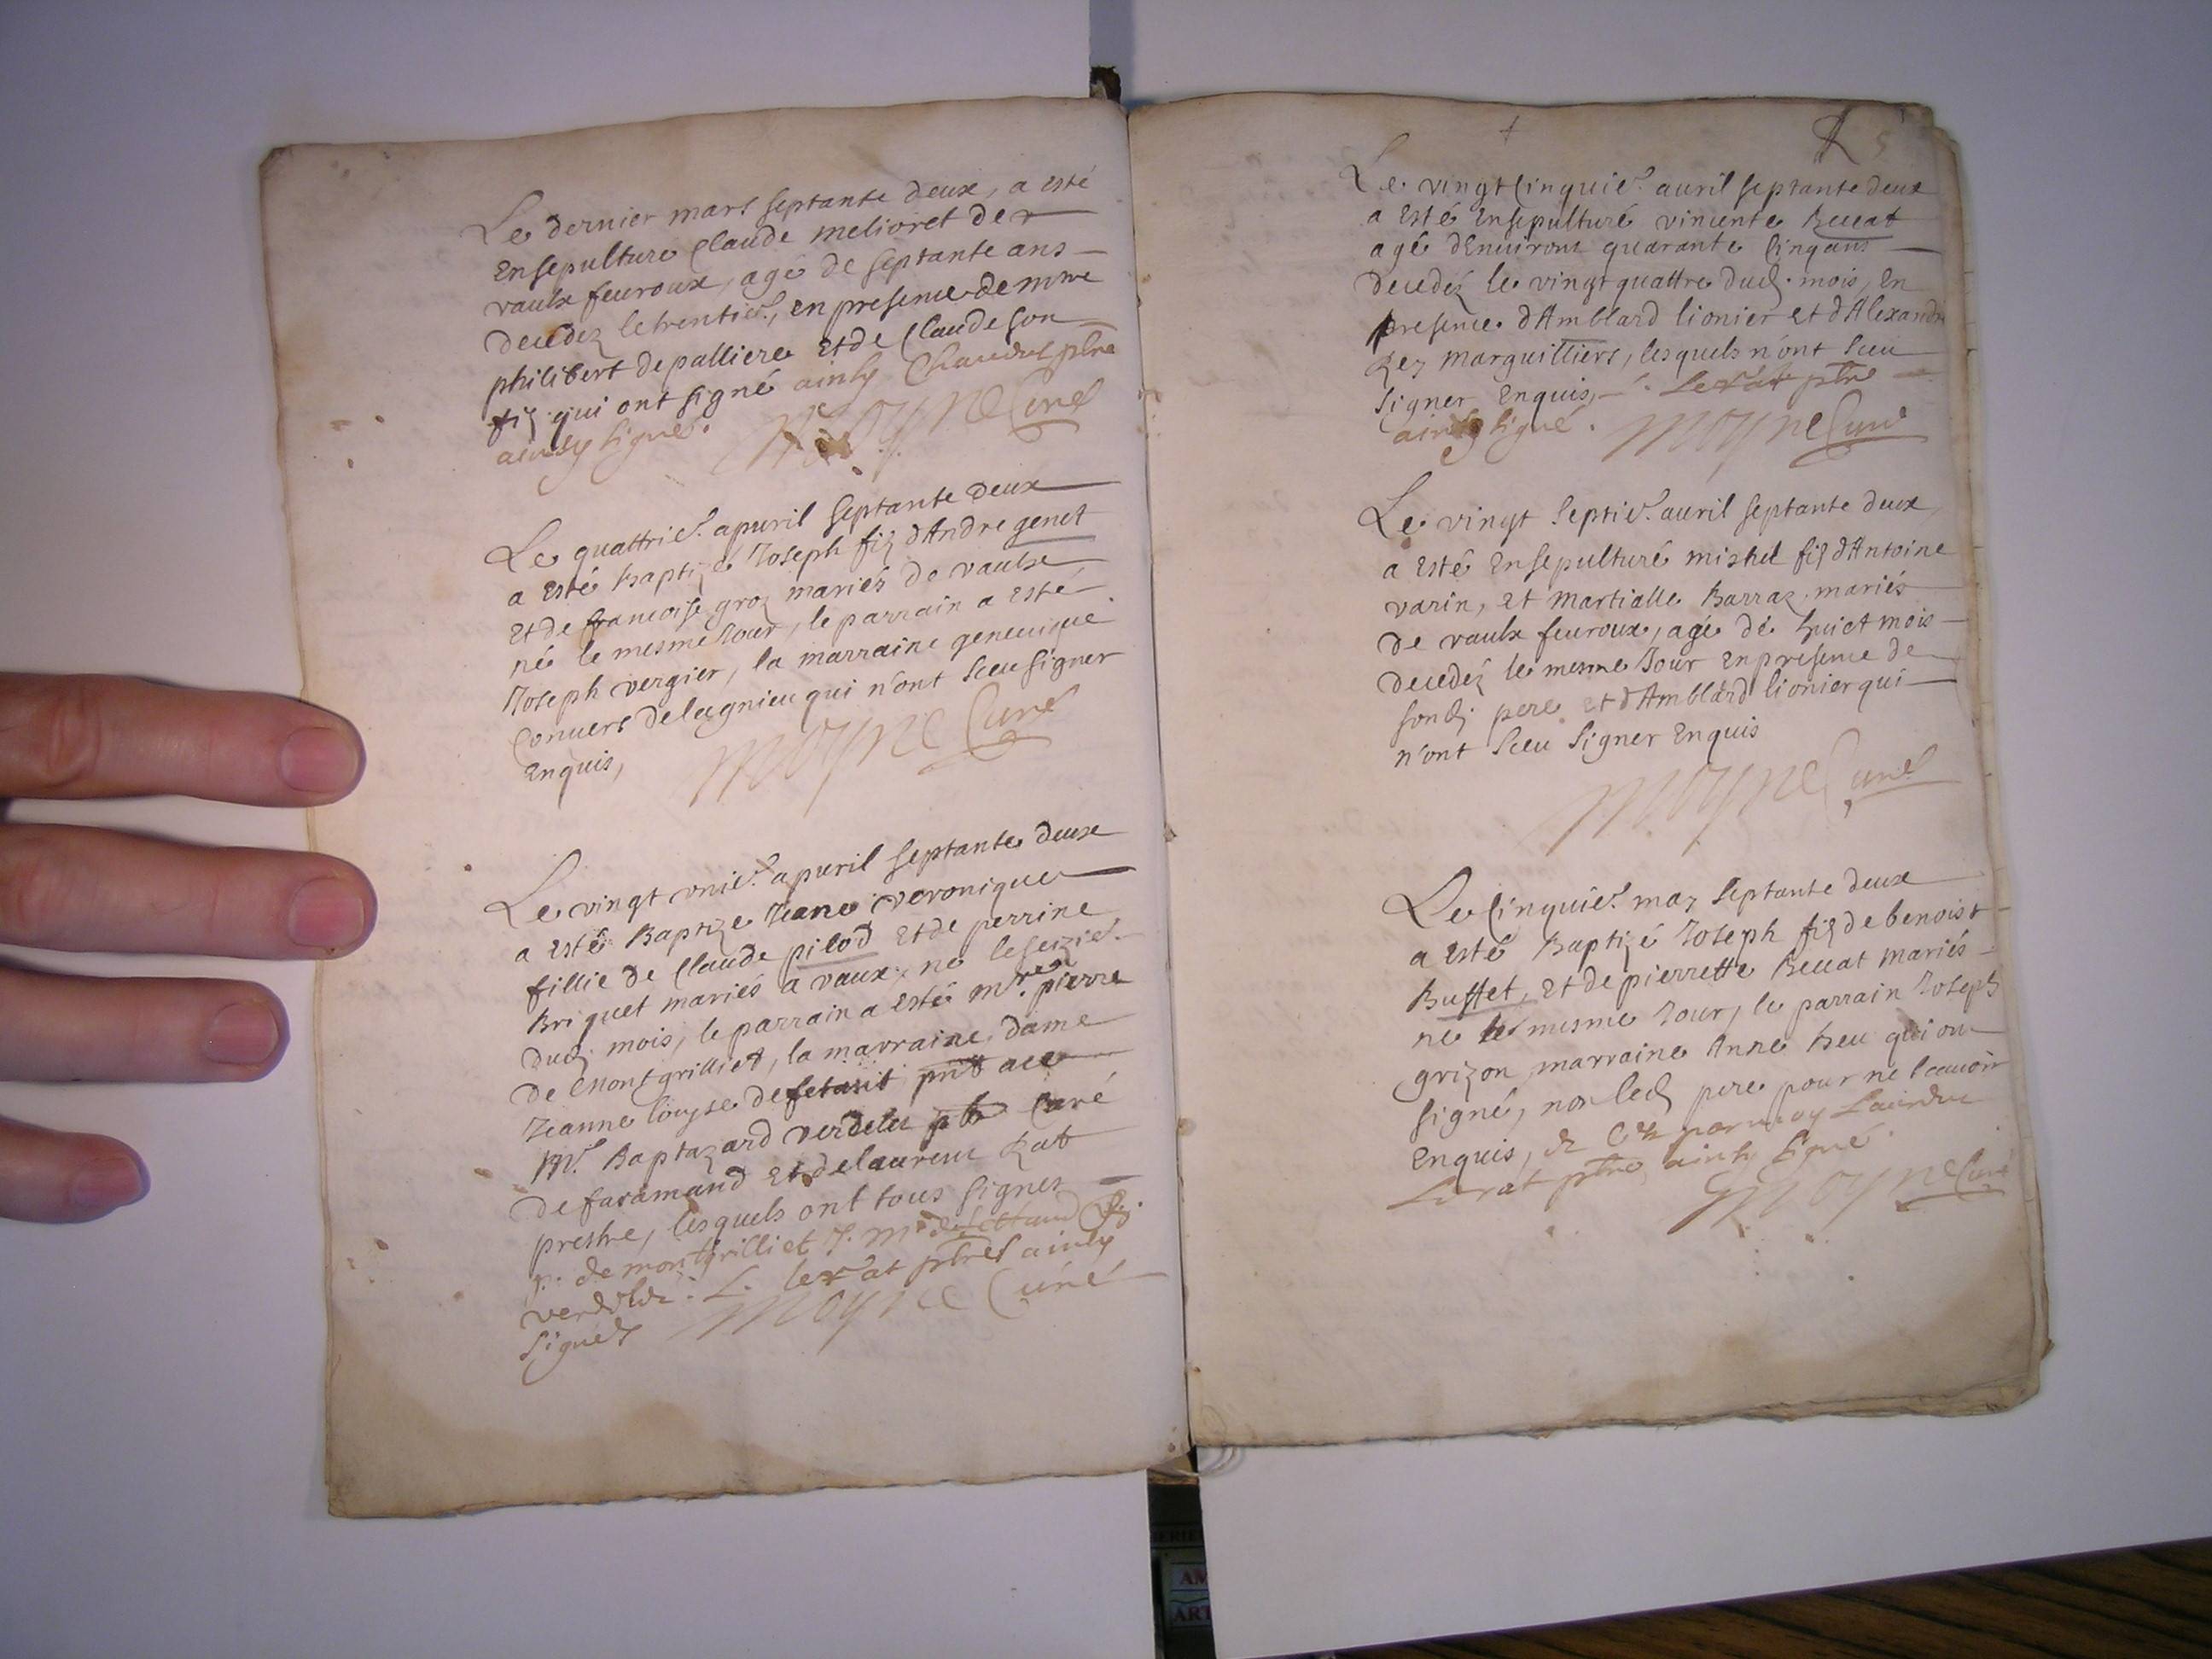 Le dernier mars septante deux, a esté
ensepulture Claude melioret de
vaulx feuroux, agé de septante ans
decedez le trentie., en presence de
philibert depalliere et de Claude son
fiz qui ont signé ainsy ptre
ainsy signé. Moyne Curé
Le quattrie. apuril septante deux
a esté baptizé Joseph fiz d'Andre genet
et de francoise groz mariés de vaulx
né le mesme Jour, le parrain a esté
Joseph vergier, la marraine geneuique
Conuers de lagnieu qui n'ont sceu signer
enquis, Moyne Curé
Le vingt vnie. apuril septante deux
a esté Baptize Jeane veronique
fillie de Claude pilod et de perrine
Briquet mariés a vaux, né le seizie.
dud. mois, le parrain a esté mre. pierre
de Montgrilliet, la marraine dame
Jeanne louyse de
Mr. Baptazard verdelet Curé
de faramand et de laurent Rat
prestre, lesquels ont tous signes
p. de montgrilliet J.
L. lerat ptres ainsy
signés Moyne Curé
5
Le vingt cinquie. auril septante deux
a esté ensepulturé vincente Beccat
agé d'enuiront quarante cinq ans
decedéz le vingt quattre dud. mois, en
presence d'Amblard lionier et d'Alexandre
Rey marguilliers, lesquels n'ont sceu
signer enquis, Lerat ptre
ainsy signé. Moyne Curé
Le vingt septie. auril septante deux,
a esté ensepulturé michel fiz d'Antoine
varin, et martialle Barraz mariés
de vaulx feuroux, agé de huict mois
decedéz le mesme Jour en presence de
sond. pere et d'Amblard lionier qui
n'ont sceu signer enquis
Moyne Curé
Le Cinquie. may septante deux
a esté Baptizé Joseph fiz de benoist
Buffet, et de pierrette Beccat mariés
ne le mesme Jour, le parrain Joseph
grizon marraine Anne beu qui ont
signé, non led. pere pour ne scauoir
enquis, par moy Laurent
Lerat ptre, ainsy signé.
Moyne Curé